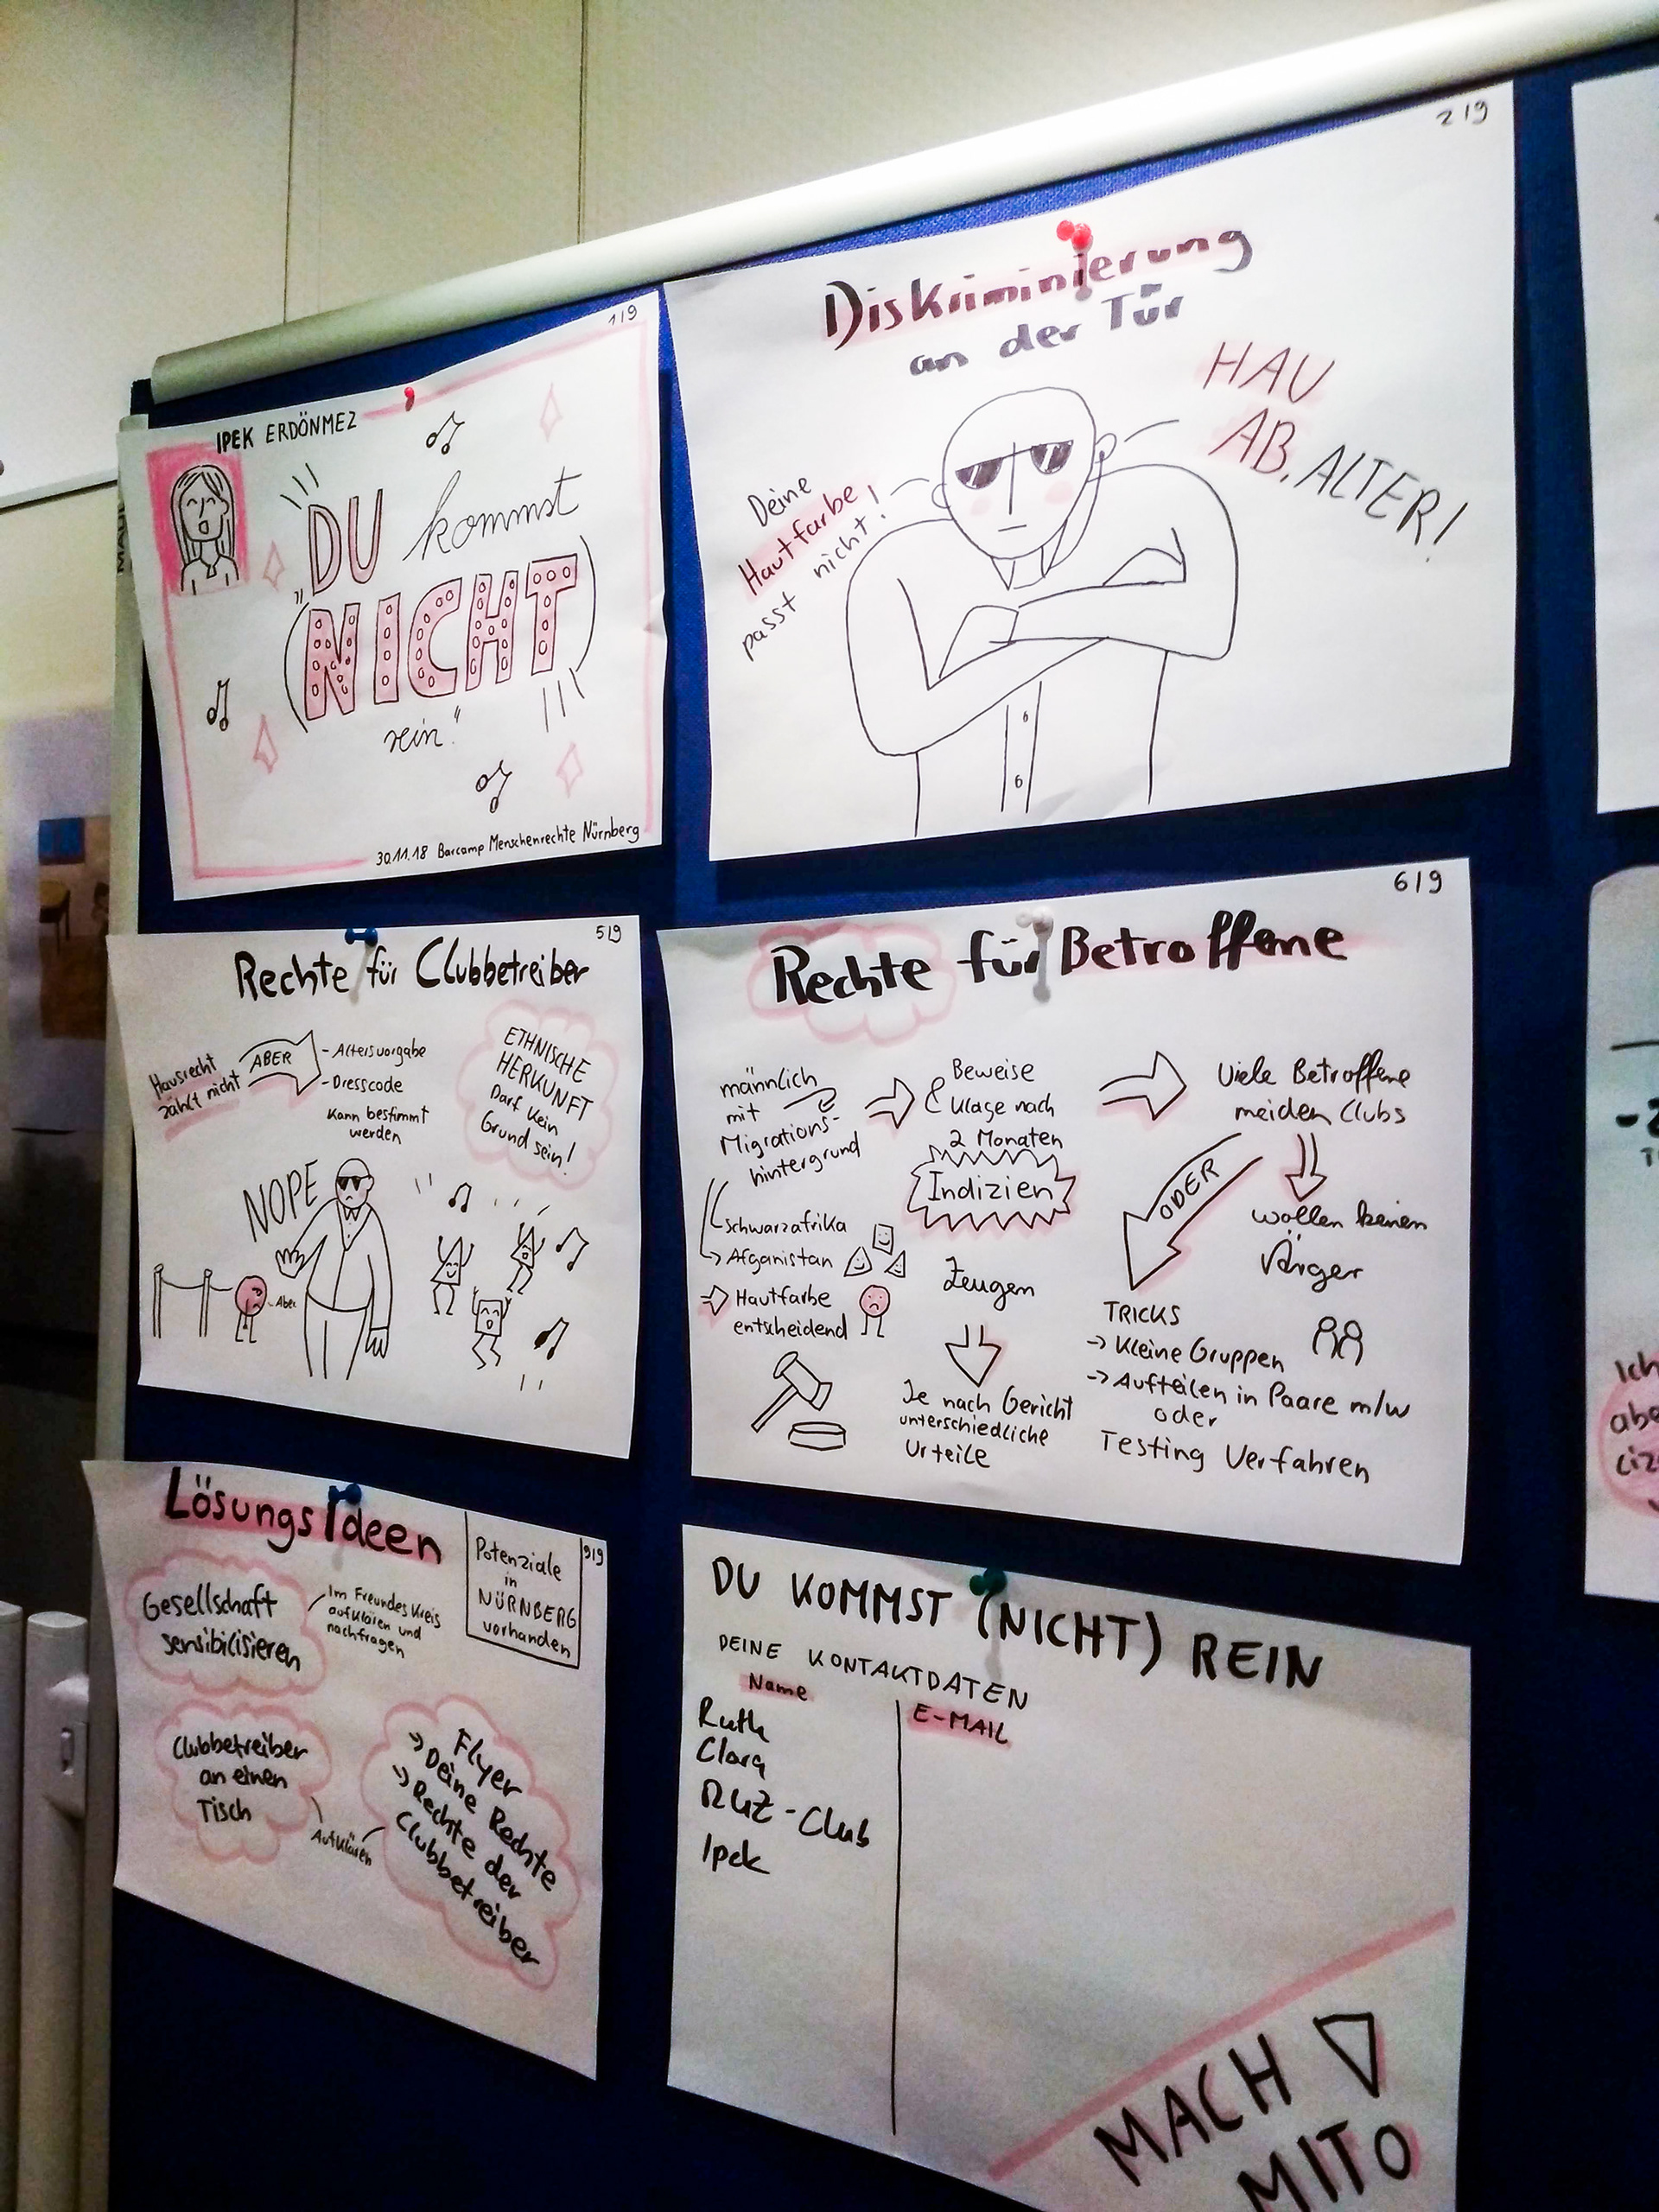 1/9
IPEK ERDÖNMEZ
„DU kommst
(NICHT)
rein“
30.11.18 Barcamp Menschenrechte Nürnberg
2/9
Diskriminierung
an der Tür
HAU
AB, ALTER!
Deine
Hautfarbe
passt nicht!
5/9
Rechte für Clubbetreiber
Hausrecht
zählt nicht
ABER
- Altersvorgabe
- Dresscode
kann bestimmt
werden
ETHNISCHE
HERKUNFT
Darf kein
Grund sein!
NOPE
- Aber
6/9
Rechte für Betroffene
männlich
mit
Migrations-
hintergrund
Schwarzafrika
Afganistan
Hautfarbe
entscheidend
Beweise
Klage nach
2 Monaten
Indizien
Zeugen
Je nach Gericht
unterschiedliche
Urteile
Viele Betroffene
meiden Clubs
ODER
wollen keinen
Ärger
TRICKS
→ Kleine Gruppen
→ Aufteilen in Paare m/w
oder
Testing Verfahren
9/9
LösungsIdeen
Potenziale
in
NÜRNBERG
vorhanden
Gesellschaft
sensibilisieren
Im Freundeskreis
aufklären und
nachfragen
Clubbetreiber
an einen
Tisch
Aufklären
Flyer
Deine Rechte
Rechte der
Clubbetreiber
DU KOMMST (NICHT) REIN
DEINE KONTAKTDATEN
Name
E-MAIL
Ruth
Clara
RUZ-Club
Ipek
MACH
MIT
Ich